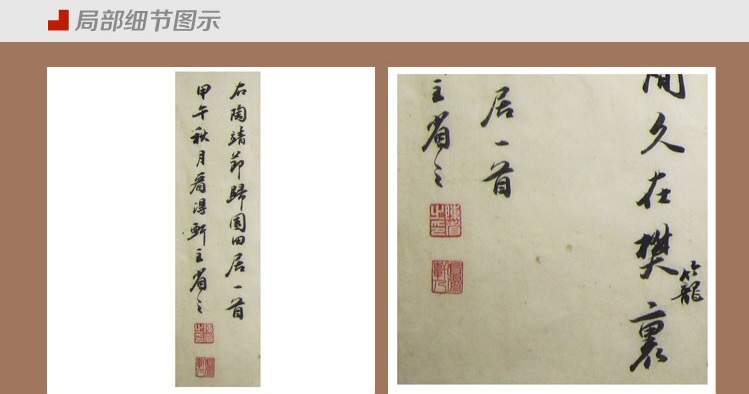 局部细节图示
右陶靖節歸園田居一首
甲午秋月看淂軒主省之
間久在樊籠裏
居一首
主省之